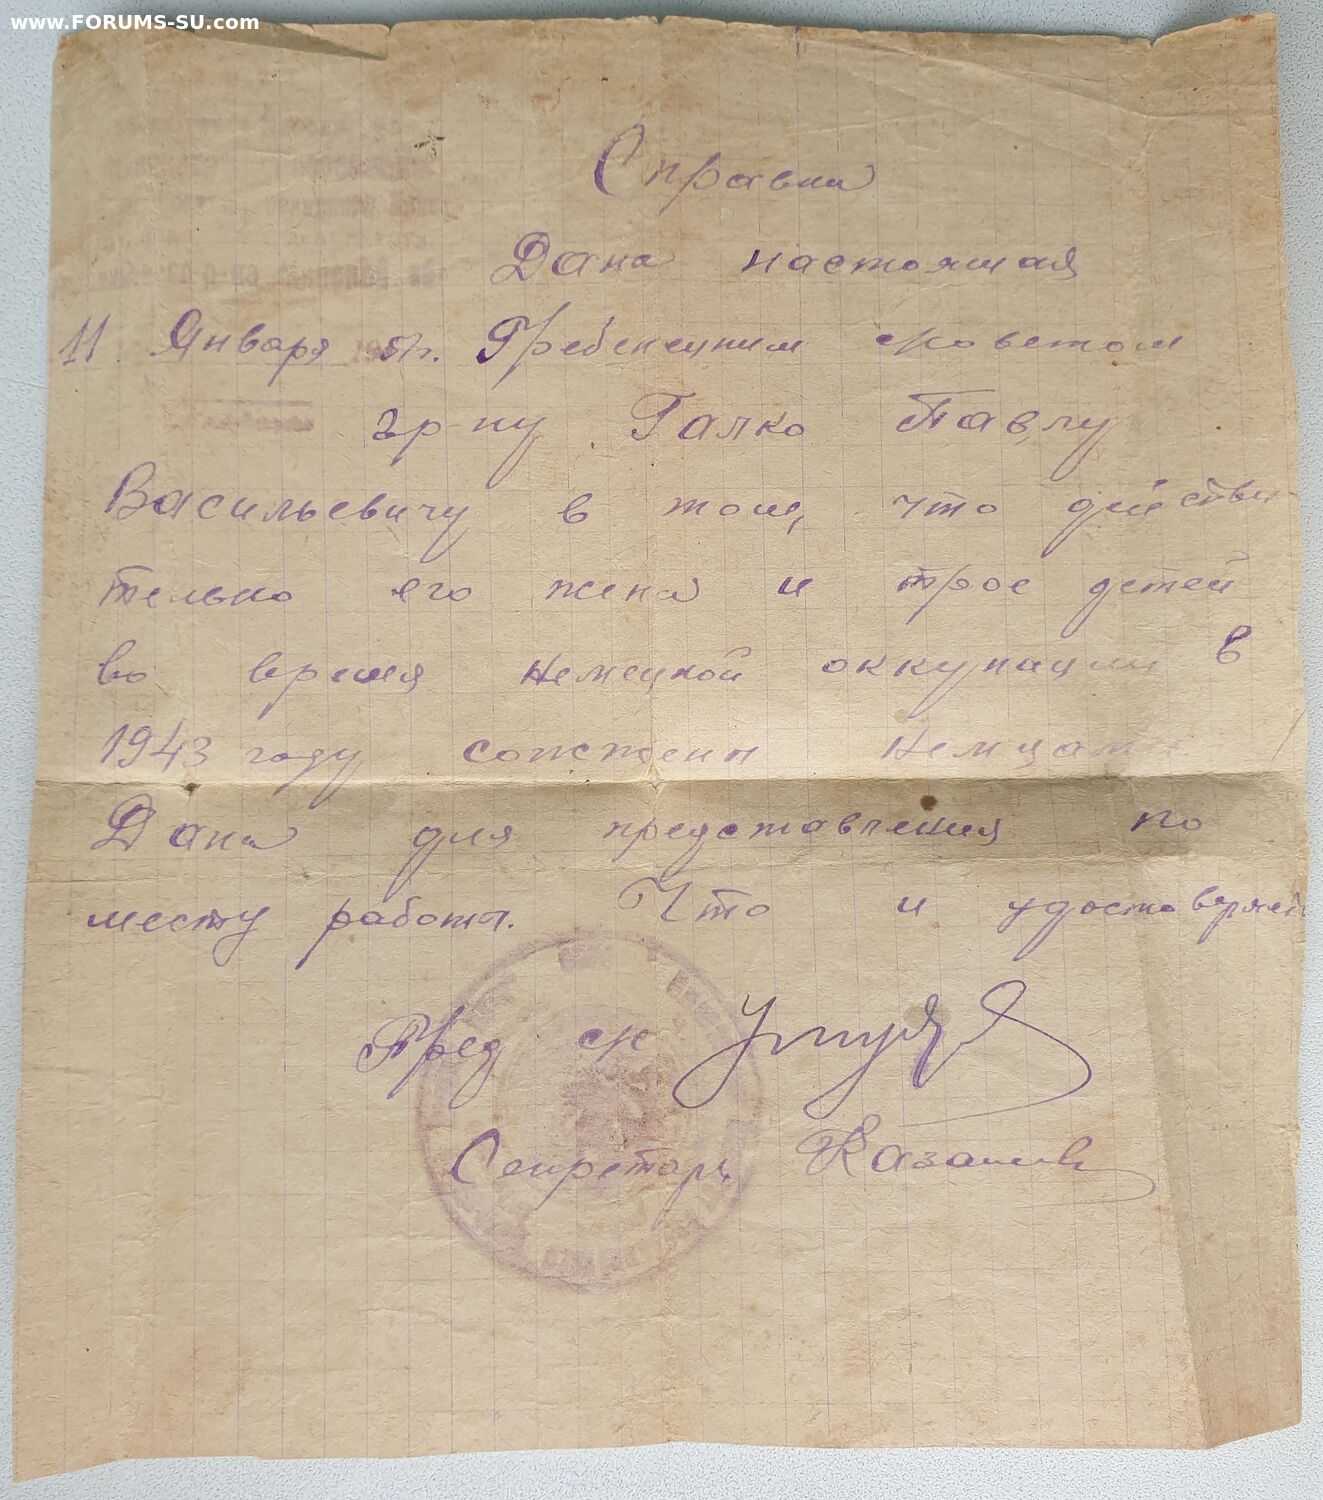 www.FORUMS-SU.com
Справка
Дана настоящая
11 Января 51г. Гребенецким с/советом
гр-ну Галко Павлу
Васильевичу в том, что действи-
тельно его жена и трое детей
во время немецкой оккупации в
1943 году сожжены немцами
Дана для представления по
месту работы. Что и удостоверяем
Пред с/с
Секретарь